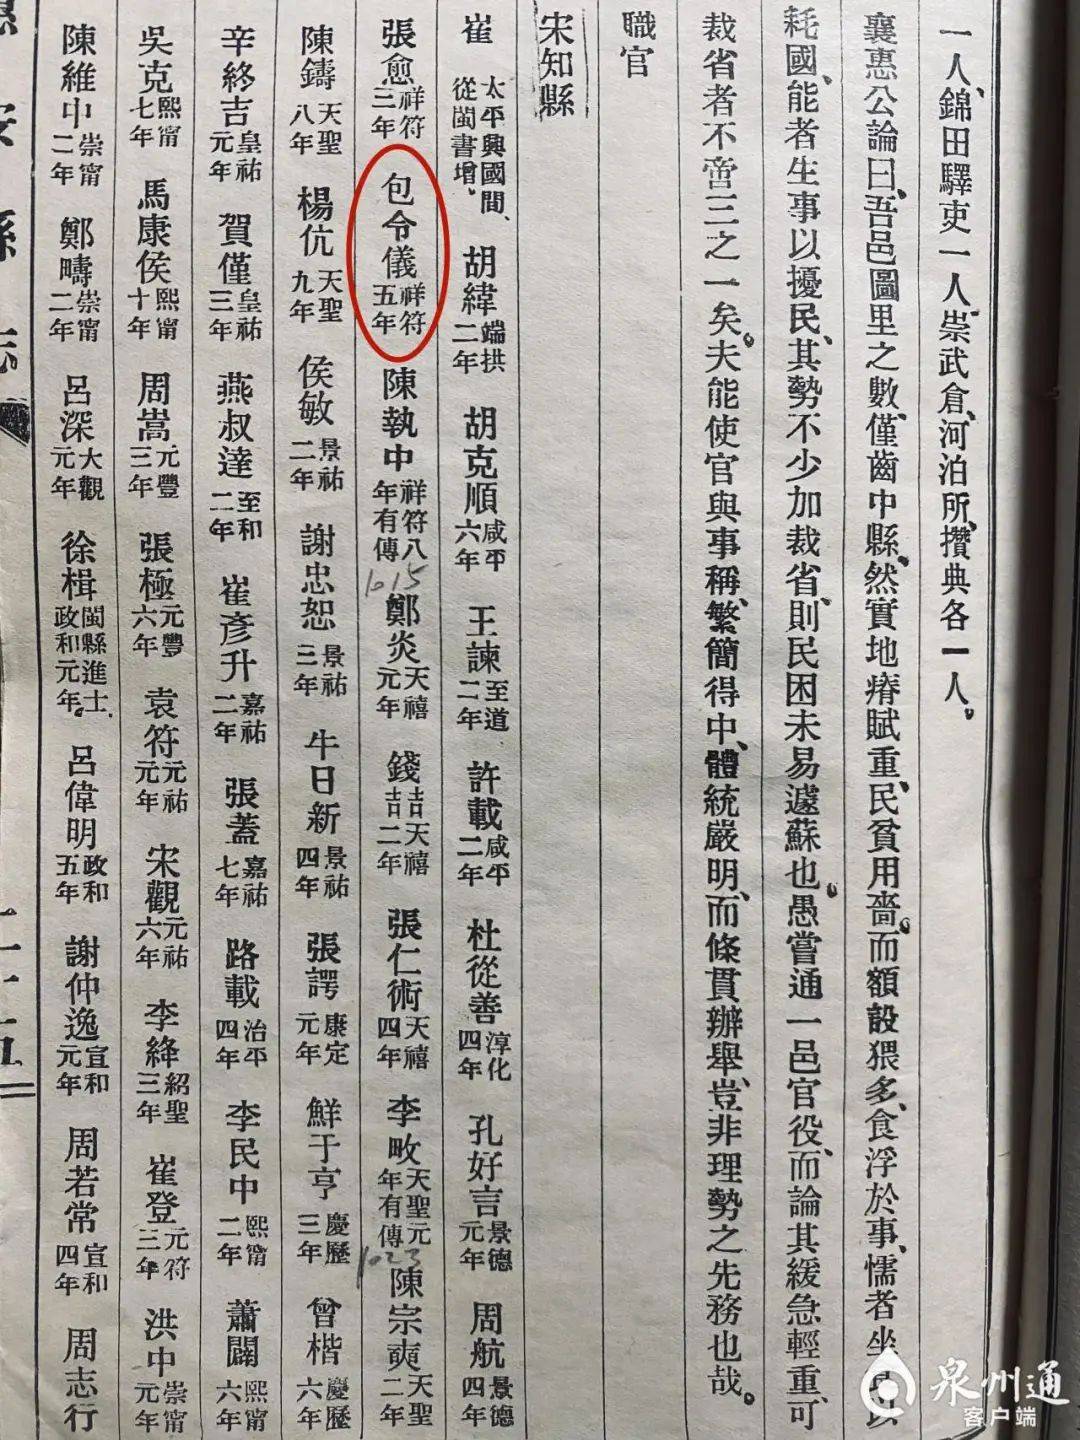 一人、錦田驛吏一人、崇武倉、河泊所、攢典各一人。
襄惠公論曰、吾邑圖里之數、僅齒中縣、然實地瘠賦重、民貧用嗇。而額設猥多、食浮於事、懦者坐食以
耗國、能者生事以擾民、其勢不少加裁省、則民困未易遽蘇也。愚嘗通一邑官役、而論其緩急輕重、可
裁省者不啻三之一矣。夫能使官與事稱、繁簡得中、體統嚴明、而條貫辦舉、豈非理勢之先務也哉。
職官
宋知縣
崔 太平興國間、從閩書增。 胡緯 端拱二年 胡克順 咸平六年 王諫 至道二年 許載 咸平二年 杜從善 淳化四年 孔好言 景德元年 周航 景德四年
張愈 祥符三年 包令儀 祥符五年 陳執中 祥符八年有傳 1015 鄭炎 天禧元年 錢吉 天禧二年 張仁術 天禧四年 李畋 天聖元年有傳 1023 陳宗奭 天聖二年
陳鑄 天聖八年 楊伉 天聖九年 侯敏 景祐二年 謝忠恕 景祐三年 牛日新 景祐四年 張諤 康定元年 鮮于亨 慶歷三年 曾楷 慶歷六年
辛終吉 皇祐元年 賀僅 皇祐三年 燕叔達 至和二年 崔彥升 嘉祐二年 張蓋 嘉祐七年 路載 治平四年 李民中 熙甯二年 蕭闢 熙甯六年
吳克 熙甯七年 馬康侯 熙甯十年 周嵩 元豐三年 張極 元豐六年 袁符 元祐元年 宋觀 元祐六年 李絳 紹聖三年 崔登 元符三年 洪中 崇甯元年
陳維中 崇甯二年 鄭疇 崇甯二年 呂深 大觀元年 徐楫 閩縣進士政和元年。 呂偉明 政和五年 謝仲逸 宣和元年 周若常 宣和四年 周志行
安縣志
泉州通
客户端